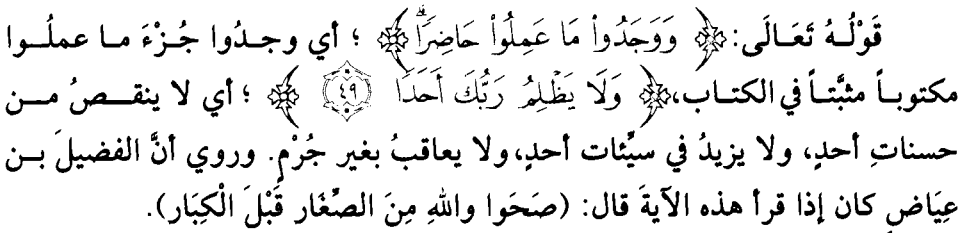 قَوْلُهُ تَعَالَى: ﴿ وَوَجَدُواْ مَا عَمِلُواْ حَاضِرًاۗ ﴾ ؛ أي وجدُوا جُزْءَ ما عملُوا
مكتوباً مثبَّتاً في الكتاب، ﴿ وَلَا يَظْلِمُ رَبُّكَ أَحَدًا ٤٩ ﴾ ؛ أي لا ينقصُ من
حسناتِ أحدٍ، ولا يزيدُ في سيِّئات أحدٍ، ولا يعاقبُ بغير جُرْمٍ. وروي أنَّ الفضيلَ بن
عِيَاضٍ كان إذا قرأ هذه الآيةَ قال: (صَحَوا واللهِ مِنَ الصِّغَار قَبْلَ الْكِبَار).